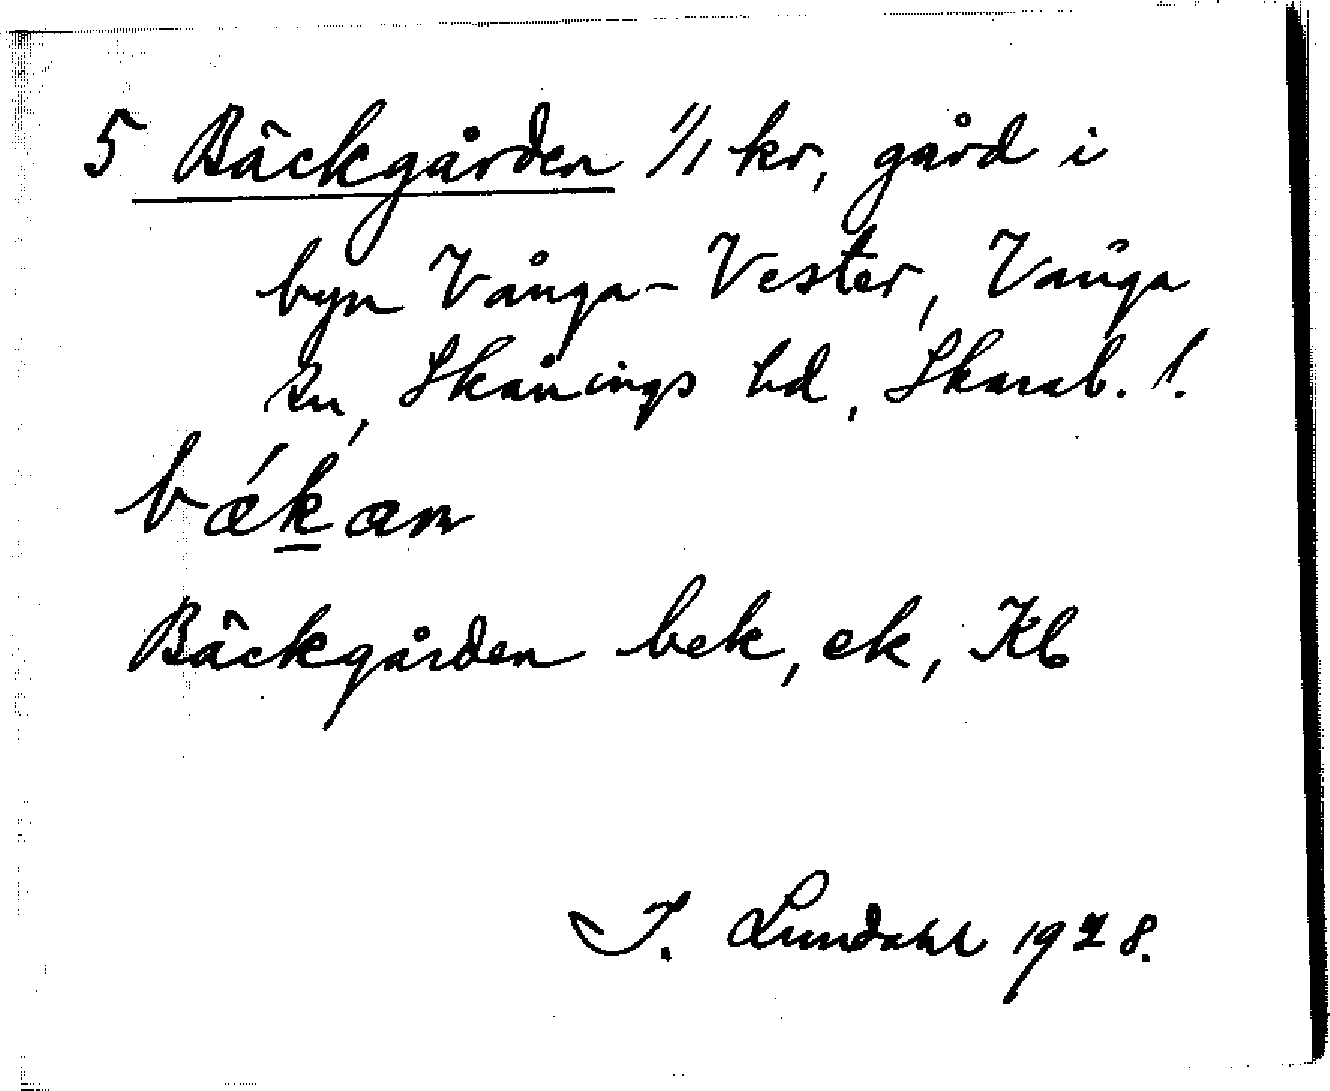 5 Bäckgården 1/1 kr, gård i
byn Vånga-Vester, Vånga
sn, Skånings hd, Skarab. l.
bǽḱæn
Bäckgården bek, ek, Kb
I. Lundahl 1928.